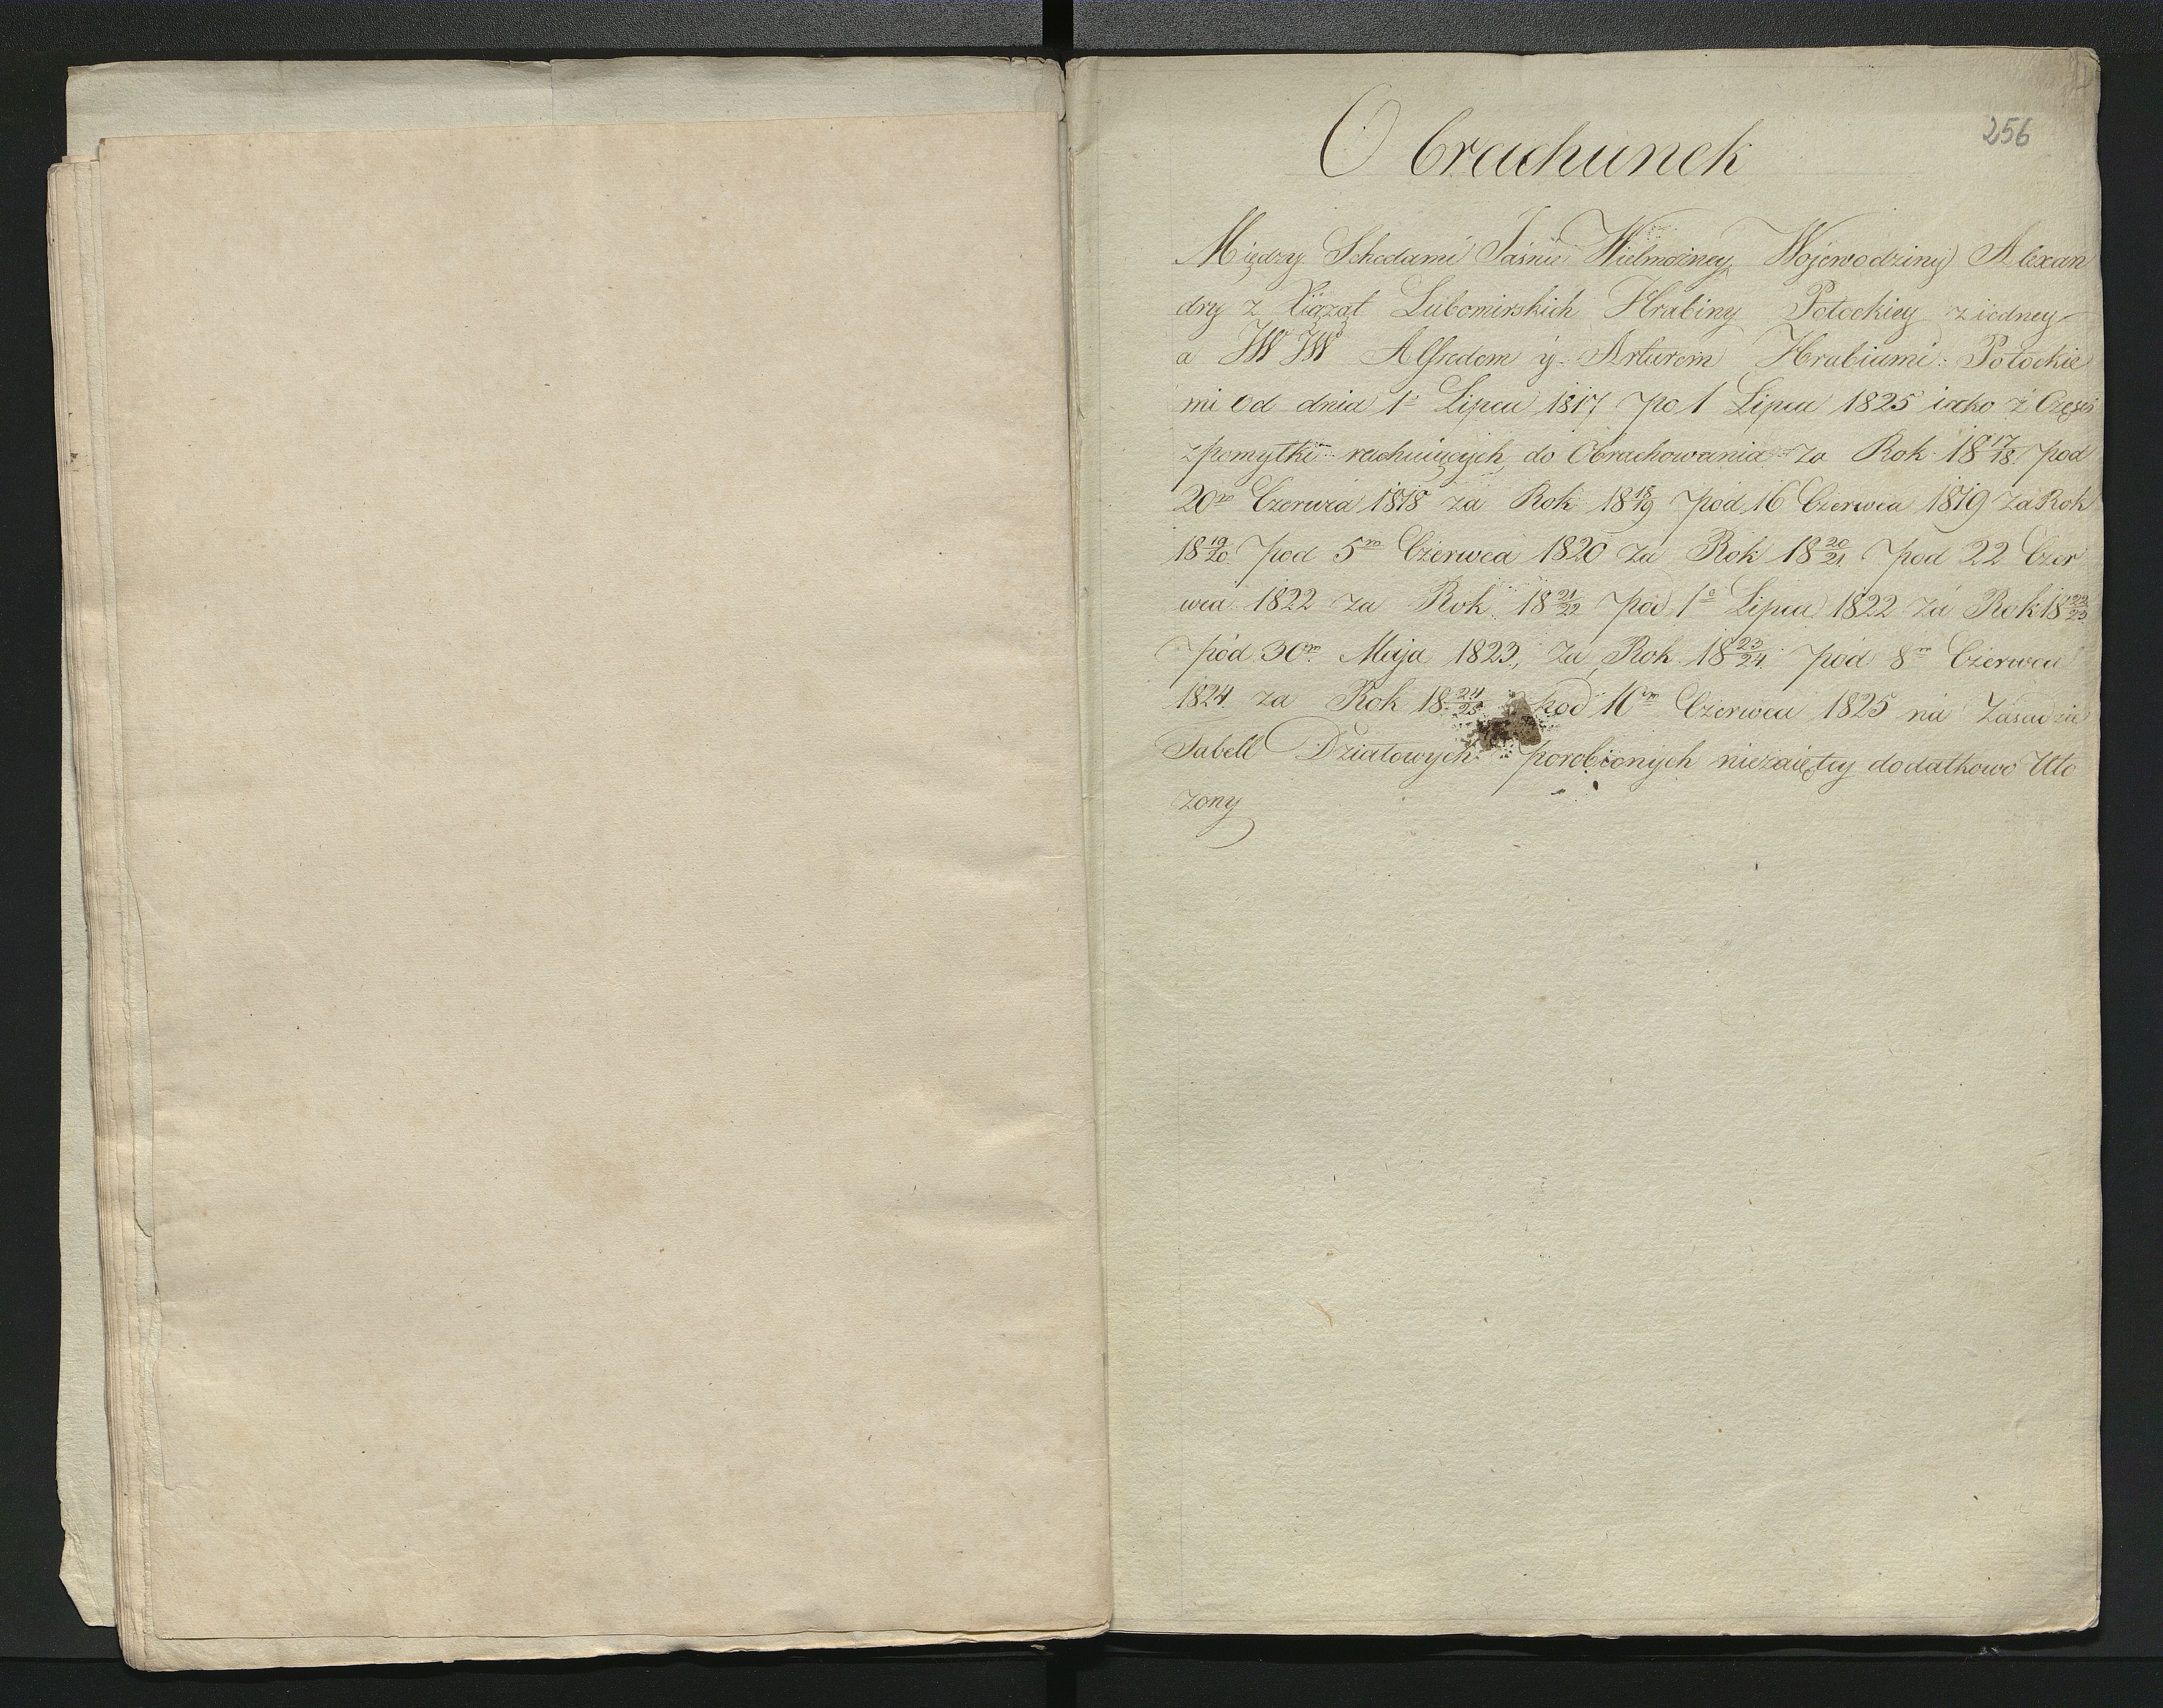 256
Obrachunek
Między Schedami Jaśnie Wielmożney Wojewodziny Alexan
dry z Xiążąt Lubomirskich Hrabiny Potockiey z iedney
a JW JW Alfredem y Arturem Hrabiami Potockie
mi od dnia 1º Lipca 1817 po 1 Lipca 1825 iako z Części
z pomyłki rachuiących do Obrachowania za Rok 18 17/18 pod
20m Czerwca 1818 za Rok 18 18/19 pod 16 Czerwca 1819 za Rok
18 19/20 pod 5m Czerwca 1820 za Rok 18 20/21 pod 22 Czer
wca 1822 za Rok 18 21/22 pod 1º Lipca 1822 za Rok 18 22/23
pod 30m Maja 1823, za Rok 18 23/24 pod 8m Czerwca
1824 za Rok 18 24/25 pod 16m Czerwca 1825 na Zasadzie
Tabell Działowych porobionych niezaiętey dodatkowo Uło
żony